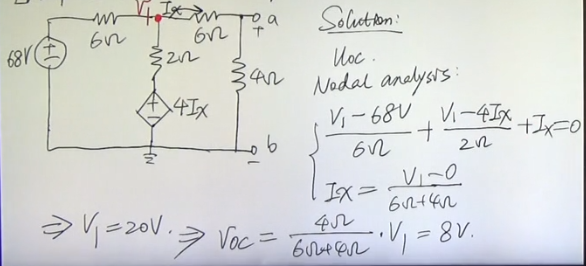 V1 Ix a
6Ω 6Ω +
68V + - 2Ω 4Ω
+ - 4Ix
b
-
Solution:
Uoc.
Nodal analysis:
{ (V1-68V)/6Ω + (V1-4Ix)/2Ω + Ix=0
Ix = (V1-0)/(6Ω+4Ω)
⇒ V1=20V. ⇒ Voc = 4Ω/(6Ω+4Ω) · V1 = 8V.